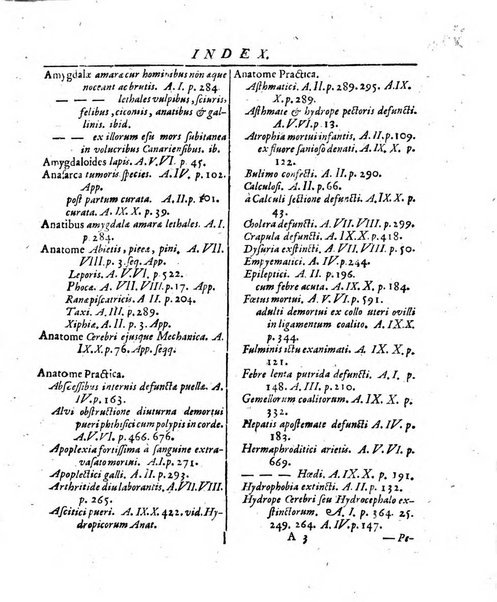 INDEX.
Amygdalæ amaræ cur hominibus non æque
noceant ac brutis. A. I. p. 284.
— — — lethales vulpibus, sciuris,
felibus, ciconiis, anatibus & gal-
linis. ibid.
— — ex illorum esu mors subitanea
in volucribus Canariensibus. ib.
Amygdaloides lapis. A. V. VI. p. 45.
Anasarca tumoris species. A. IV. p. 102.
App.
post partum curata. A. II. p. 101.
curata. A. IX. X. p. 39.
Anatibus amygdalæ amaræ lethales. A. I.
p. 284.
Anatome Abietis, piceæ, pini. A. VII.
VIII. p. 3. seq. App.
Leporis. A. V. VI. p. 522.
Phocæ. A. VII. VIII. p. 17. App.
Ranæ piscatricis. A. II. p. 204.
Taxi. A. III. p. 289.
Xiphiæ. A. II. p. 3. App.
Anatome Cerebri ejusque Mechanica. A.
IX. X. p. 76. App. seqq.
Anatome Practica.
Abscessibus internis defunctæ puellæ. A.
IV. p. 163.
Alvi obstructione diuturna demortui
pueri phthisici cum polypis in corde.
A. V. VI. p. 466. 676.
Apoplexia fortissima à sanguine extra-
vasato mortui. A. I. p. 271.
Apoplectici galli. A. II. p. 293.
Arthritide diu laborantis. A. VII. VIII.
p. 265.
Ascitici pueri. A. IX. X. 422. vid. Hy-
dropicorum Anat.
Anatome Practica.
Asthmatici. A. II. p. 289. 295. A. IX.
X. p. 289.
Asthmate & hydrope pectoris defuncti. A.
V. VI. p. 13.
Atrophia mortui infantis. A. II. p. 109.
ex fluore sanioso denati. A. IX. X. p.
122.
Bulimo confecti. A. II. p. 290.
Calculosi. A. II. p. 66.
à Calculi sectione defuncti. A. IX. X. p.
43.
Cholera defuncti. A. VII. VIII. p. 299.
Crapula defuncti. A. IX. X. p. 418.
Dysuria exstincti. A. VII. VIII. p. 50.
Empyematici. A. IV. p. 244.
Epileptici. A. II. p. 196.
cum febre acuta. A. IX. X. p. 184.
Fœtus mortui. A. V. VI. p. 591.
adulti demortui ex collo uteri ovilli
in ligamentum coalito. A. IX. X.
p. 344.
Fulminis ictu exanimati. A. IX. X. p.
121.
Febre lenta putrida defuncti. A. I. p.
148. A. III. p. 210.
Gemellorum coalitorum. A. IX. X. p.
332.
Hepatis apostemate defuncti A. IV. p.
183.
Hermaphroditici arietis. A. V. VI. p.
669.
— — — Hœdi. A. IX. X. p. 191.
Hydrophobia extincti. A. II. p. 132.
Hydrope Cerebri seu Hydrocephalo ex-
stinctorum. A. I. p. 364. 25.
249. 264. A. IV. p. 147.
A 3
— Pe-